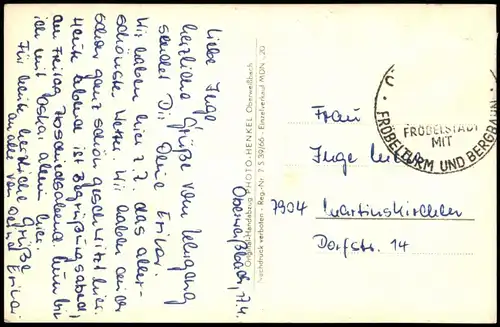 Oberweißbach, 17.4.
Liebe Inge!
herzliche Grüße vom Lehrgang
sendet Dir Deine Erika.
Wir haben hier z. Z. das aller-
schönste Wetter. Wir haben auch
schon ganz schön geschwitzt hier.
Heute Abend ist Begrüßungsabend,
am Freitag Abschiedsabend. Nun bin
ich mit allein hier.
Für heute herzliche Grüße
an alle von Erika.
Original-Handabzug PHOTO-HENKEL Oberweißbach
Nachdruck verboten - Reg.-Nr. 7 S 39/66 - Einzelverkauf MDN -,20
FRÖBELSTADT
MIT
FRÖBELTURM UND BERGBAHN
Frau
Inge
7904 Martinskirchen
Dorfstr. 14